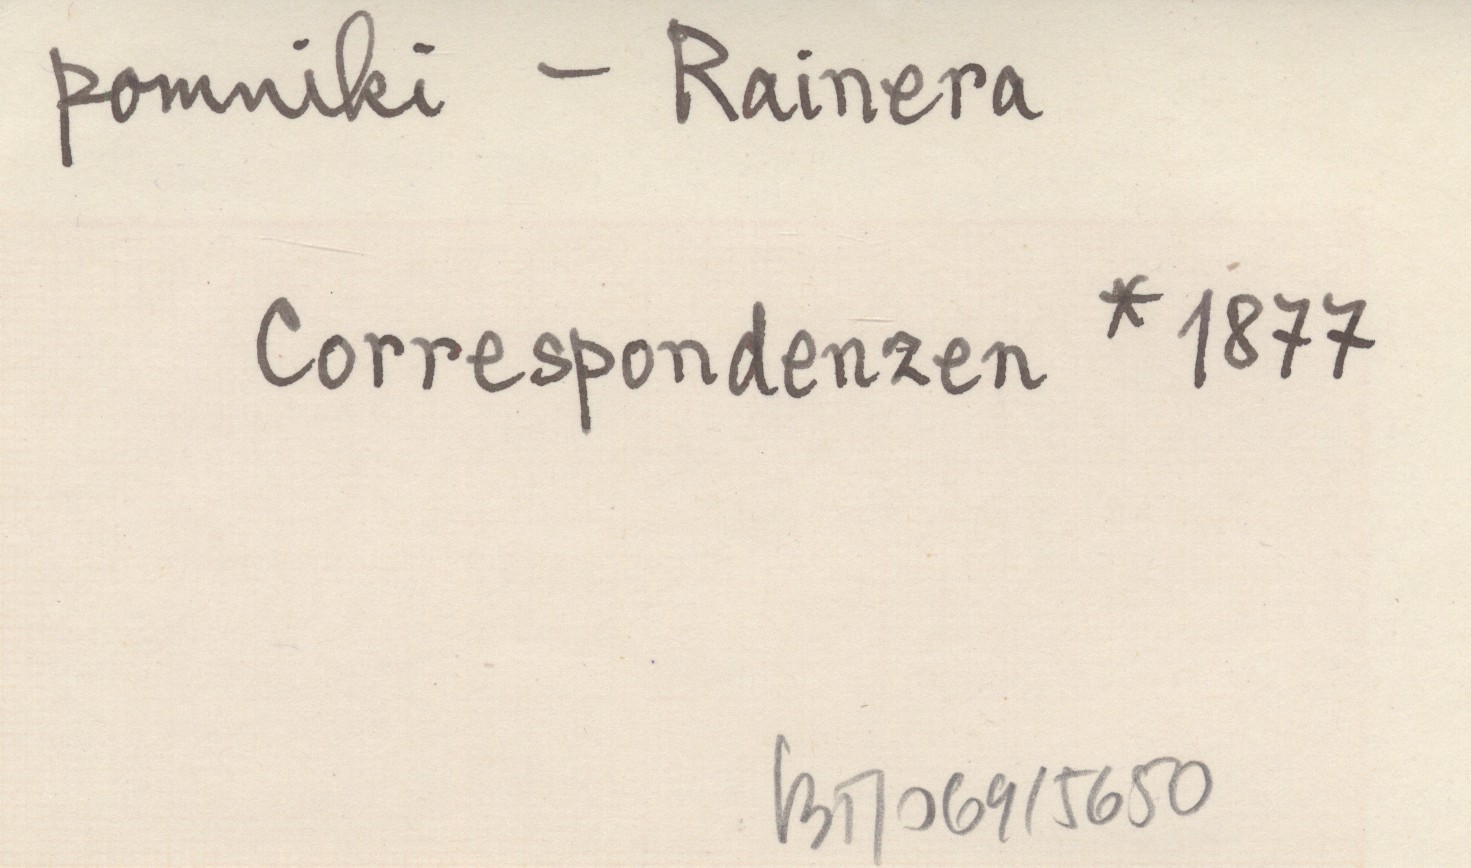 pomniki – Rainera
Correspondenzen * 1877
BT/069/5650